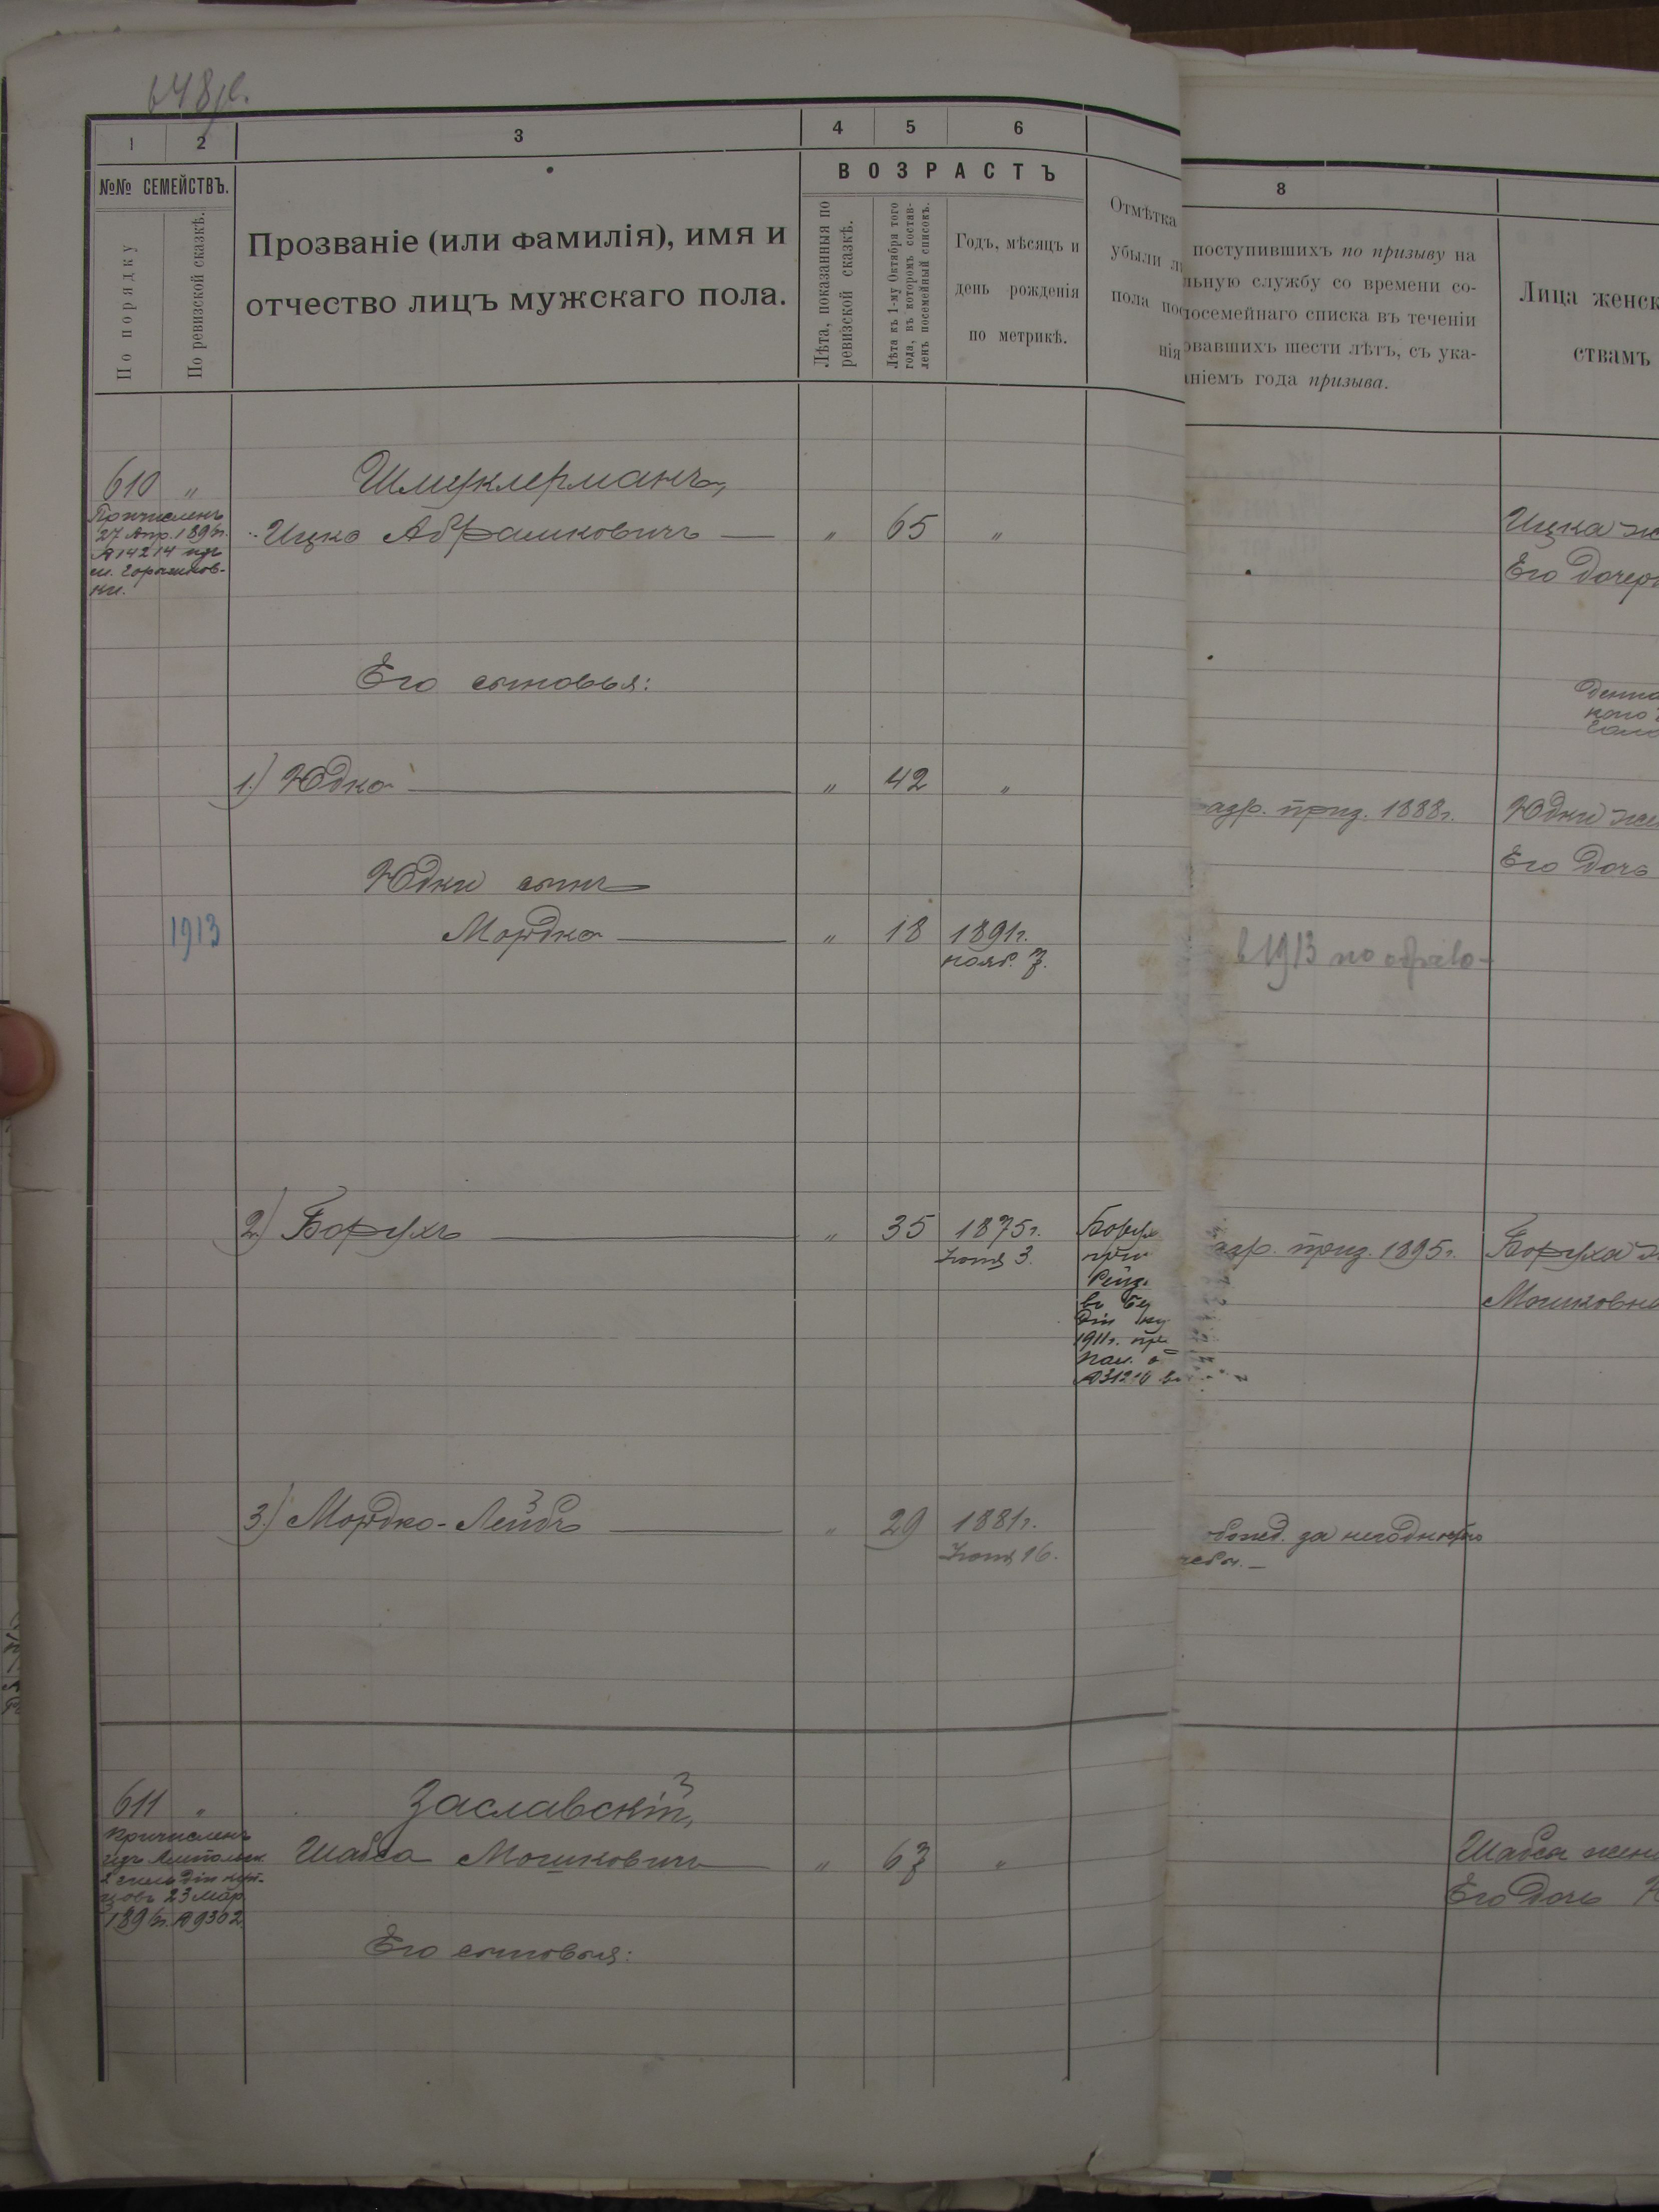 648
1
2
3
4
5
6
8
№№ СЕМЕЙСТВЪ.
По порядку
По ревизской сказкѣ.
Прозваніе (или фамилія), имя и
отчество лицъ мужскаго пола.
ВОЗРАСТЪ
Лѣта, показанныя по
ревизской сказкѣ.
Лѣта къ 1-му Октября того
года, въ которомъ состав-
ленъ посемейный списокъ.
Годъ, мѣсяцъ и
день рожденія
по метрикѣ.
Отмѣтка
убыли
пола
нія
поступившихъ по призыву на
льную службу со времени со-
посемейнаго списка въ теченіи
овавшихъ шести лѣтъ, съ ука-
аніемъ года призыва.
Лица женск
ствамъ
610 „
Причисленъ
27 Апр. 189
№ 14214 изъ
м. Горашков-
ки.
Шмуклерманъ,
Ицко Абрамковичъ — „ 65 „
Ицка ж
Его дочер
Его сыновья:
1.) Юдко — „ 42 „
приз. 1888г.
Юдки же
Его дочь
Юдки сынъ
1913
Мордко — „ 18 1891г.
нояб. 7.
в 1913 по
2.) Борухъ — „ 35 1875г.
Іюня 3.
Борух
1911г.
приз. 1895г.
Боруха ж
Мошковна
3.) Мордко-Лейбъ — „ 29 1881г.
Іюня 16.
за негодностью
611 „
Причисленъ
изъ
2 гильдіи куп-
цовъ 23 мар.
189 г. № 9302
Заславскій,
Шабса Мошковичъ — „ 67 „
Шабса жен
Его дочь
Его сыновья: